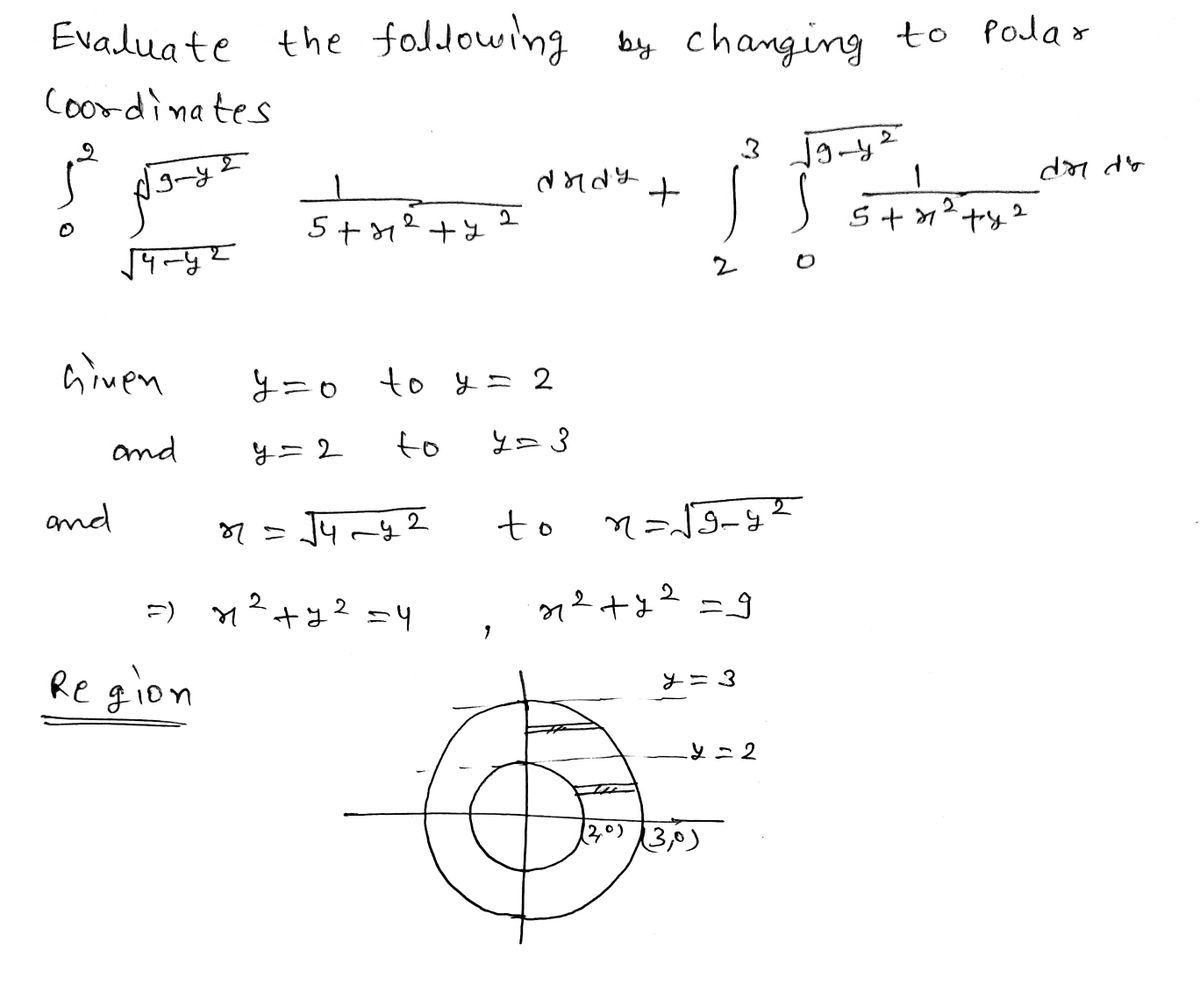 Evaluate the following by changing to Polar
Coordinates
∫₀² ∫_{√4-y²}^{√9-y²} 1/(5+x²+y²) dxdy + ∫₂³ ∫₀^{√9-y²} 1/(5+x²+y²) dx dy
Given y=0 to y=2
and y=2 to y=3
and x=√4-y² to x=√9-y²
=) x²+y²=4 , x²+y²=9
Region
y=3
y=2
(2,0) (3,0)